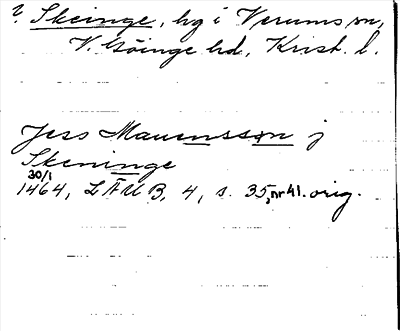 ? Skeinge, hg i Verums sn,
V. Göinge hd, Krist. l.
Jess Mauensson j
Skeninge
30/1
1464, LÄUB, 4, s. 35, nr 41. orig.